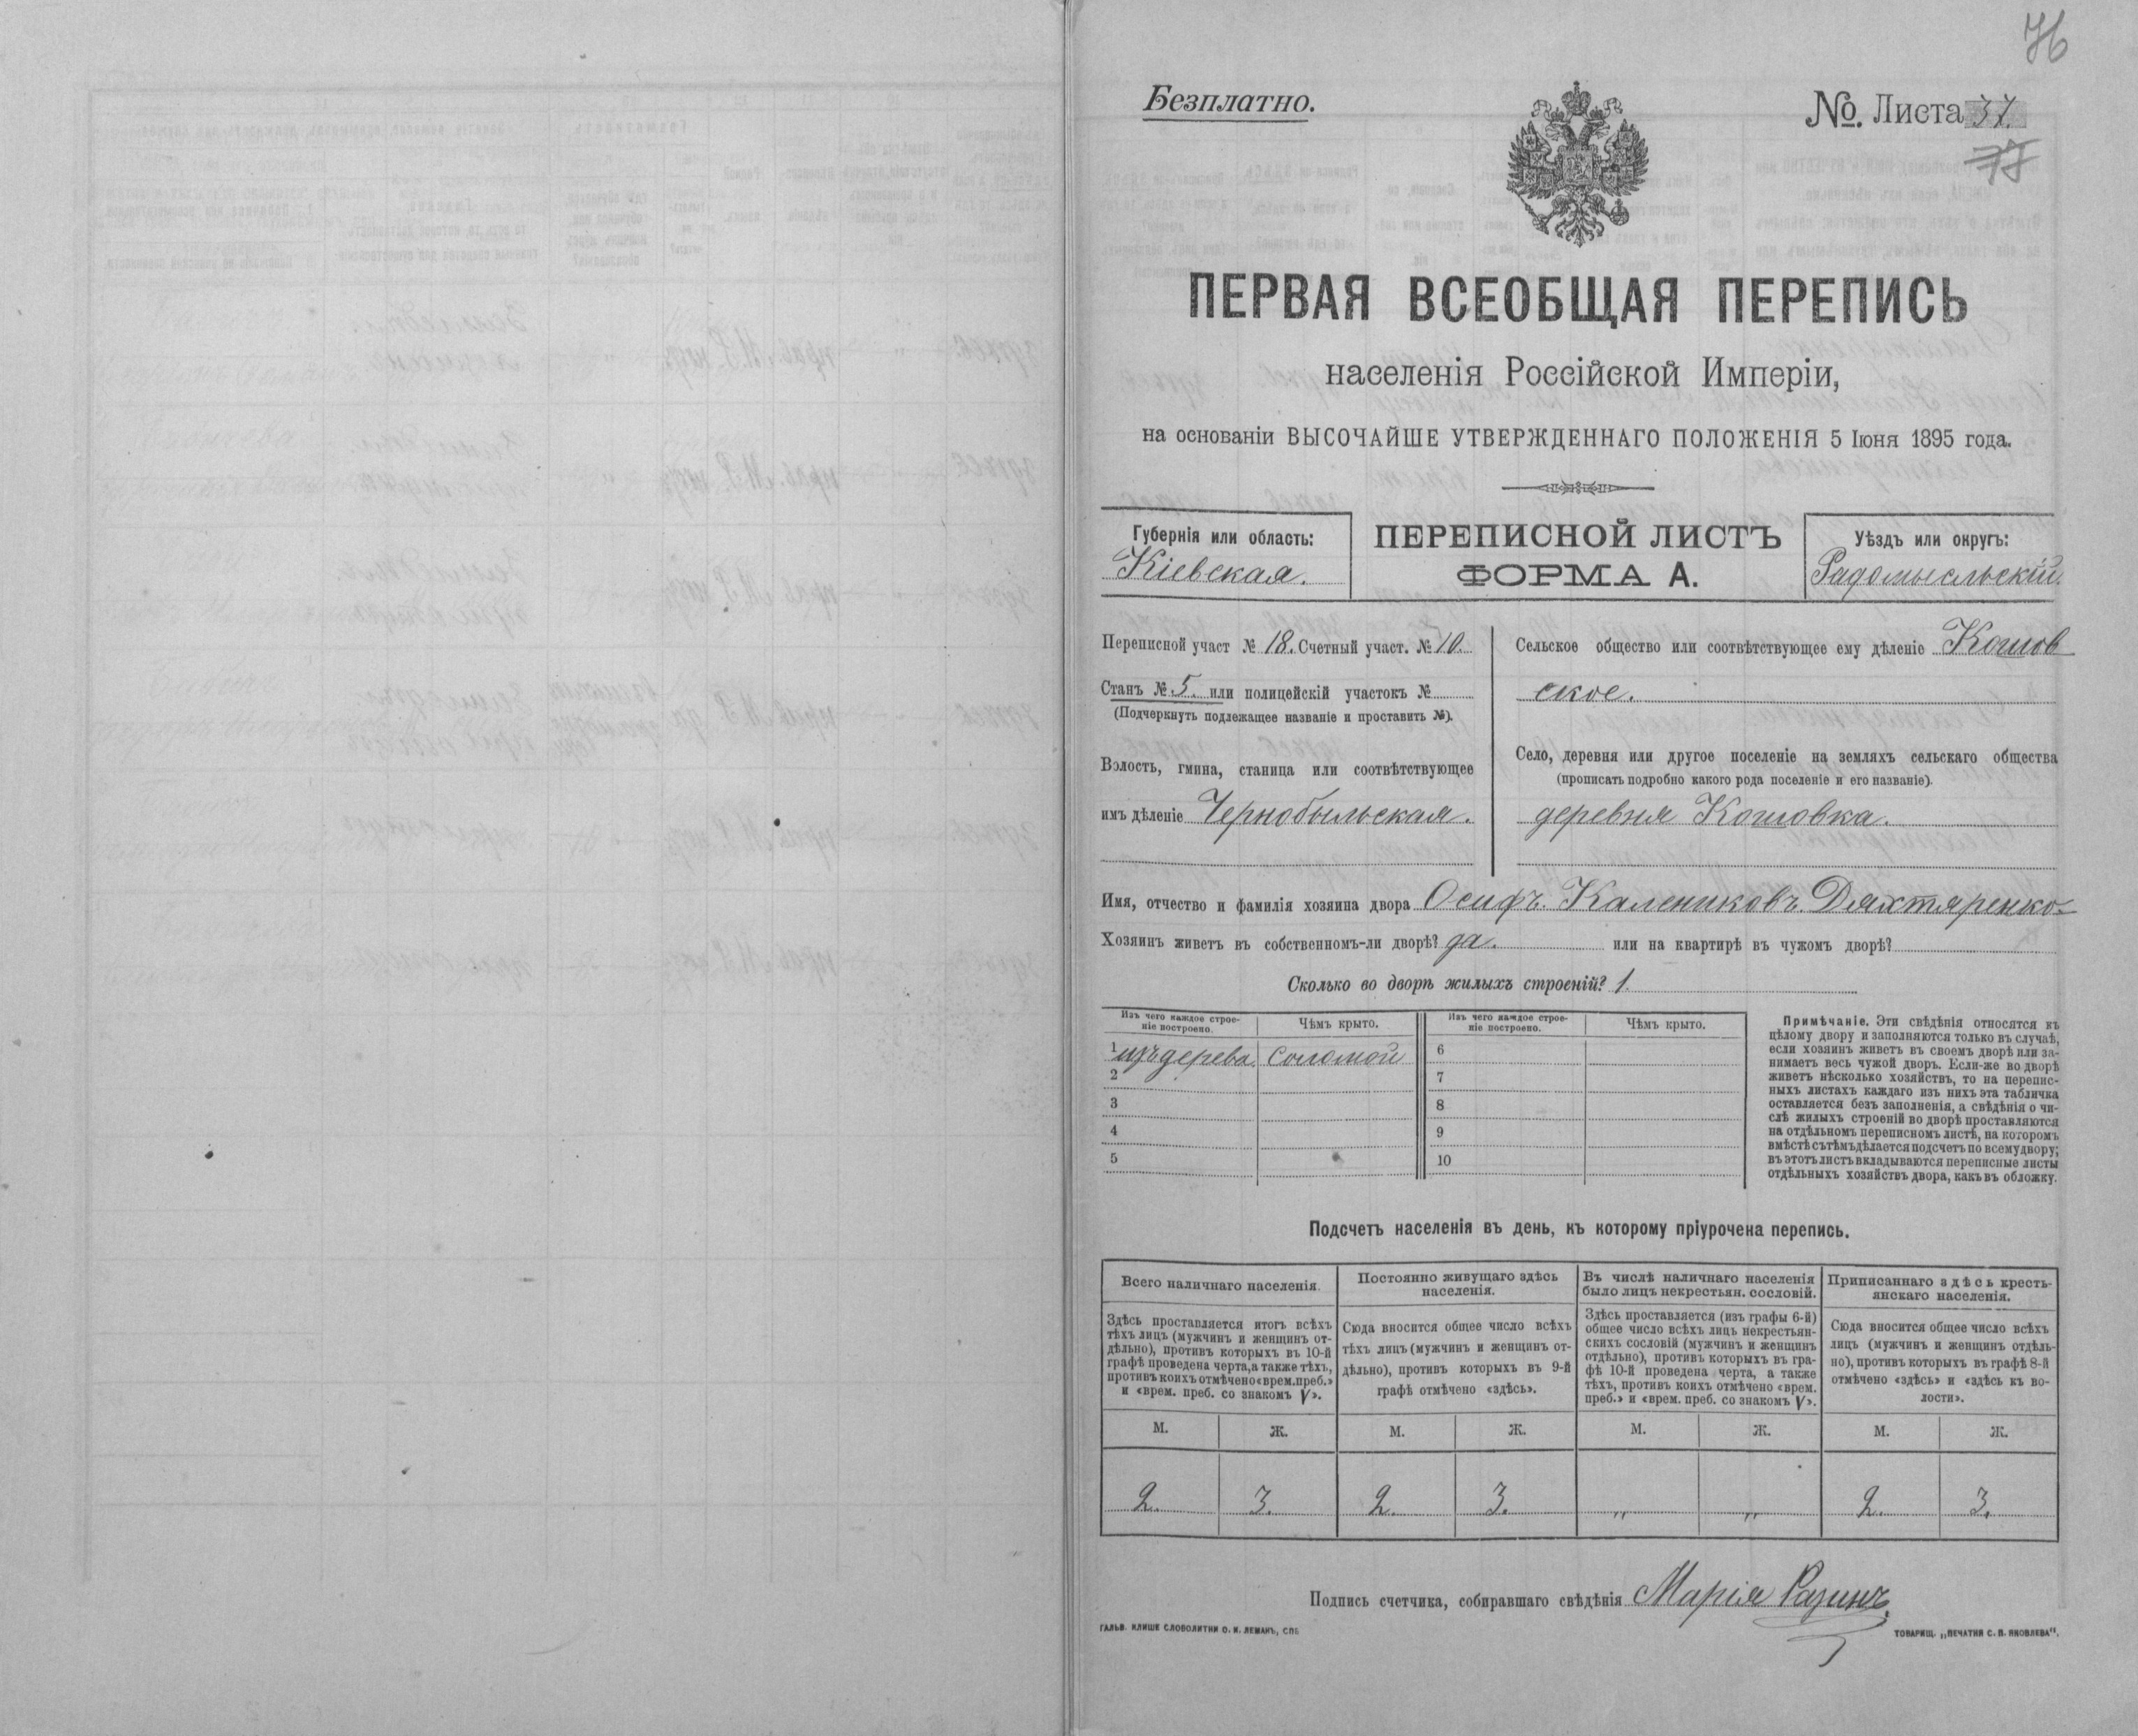 76
Безплатно.
№ Листа 37.
77
ПЕРВАЯ ВСЕОБЩАЯ ПЕРЕПИСЬ
населенія Россійской Имперіи,
на основаніи ВЫСОЧАЙШЕ УТВЕРЖДЕННАГО ПОЛОЖЕНІЯ 5 Іюня 1895 года.
Губернія или область:
Кіевская.
ПЕРЕПИСНОЙ ЛИСТЪ
ФОРМА А.
Уѣздъ или округъ:
Радомысльскій.
Переписной участ № 18. Счетный участ. № 10.
Станъ № 5. или полицейскій участокъ №
(Подчеркнуть подлежащее названіе и проставить №).
Волость, гмина, станица или соотвѣтствующее
имъ дѣленіе Чернобыльская.
Сельское общество или соотвѣтствующее ему дѣленіе Кошов
ское.
Село, деревня или другое поселеніе на земляхъ сельскаго общества
(прописать подробно какого рода поселеніе и его названіе).
деревня Кошовка.
Имя, отчество и фамилія хозяина двора Осифъ Калениковъ Дяхтяренко
Хозяинъ живетъ въ собственномъ-ли дворѣ? да. или на квартирѣ въ чужомъ дворѣ?
Сколько во дворѣ жилыхъ строеній? 1.
Изъ чего каждое строе-
ніе построено.
Чѣмъ крыто.
Изъ чего каждое строе-
ніе построено.
Чѣмъ крыто.
1 изъ дерева. соломой
2
3
4
5
6
7
8
9
10
Примѣчаніе. Эти свѣдѣнія относятся къ
цѣлому двору и заполняются только въ случаѣ,
если хозяинъ живетъ въ своемъ дворѣ или за-
нимаетъ весь чужой дворъ. Если-же во дворѣ
живетъ нѣсколько хозяйствъ, то на перепис-
ныхъ листахъ каждаго изъ нихъ эта табличка
оставляется безъ заполненія, а свѣдѣнія о чи-
слѣ жилыхъ строеній во дворѣ проставляются
на отдѣльномъ переписномъ листѣ, на которомъ
вмѣстѣ съ тѣмъ дѣлается подсчетъ по всему двору;
въ этотъ листъ вкладываются переписные листы
отдѣльныхъ хозяйствъ двора, какъ въ обложку.
Подсчетъ населенія въ день, къ которому пріурочена перепись.
Всего наличнаго населенія.
Здѣсь проставляется итогъ всѣхъ
тѣхъ лицъ (мужчинъ и женщинъ от-
дѣльно), противъ которыхъ въ 10-й
графѣ проведена черта, а также тѣхъ,
противъ коихъ отмѣчено «врем. преб.»
и «врем. преб. со знакомъ V».
Постоянно живущаго здѣсь
населенія.
Сюда вносится общее число всѣхъ
тѣхъ лицъ (мужчинъ и женщинъ от-
дѣльно), противъ которыхъ въ 9-й
графѣ отмѣчено «здѣсь».
Въ числѣ наличнаго населенія
было лицъ некрестьян. сословій.
Здѣсь проставляется (изъ графы 6-й)
общее число всѣхъ лицъ некрестьян-
скихъ сословій (мужчинъ и женщинъ
отдѣльно), противъ которыхъ въ гра-
фѣ 10-й проведена черта, а также
тѣхъ, противъ коихъ отмѣчено «врем.
преб.» и «врем. преб. со знакомъ V».
Приписаннаго здѣсь кресть-
янскаго населенія.
Сюда вносится общее число всѣхъ
лицъ (мужчинъ и женщинъ отдѣль-
но), противъ которыхъ въ графѣ 8-й
отмѣчено «здѣсь» и «здѣсь къ во-
лости».
М. Ж. М. Ж. М. Ж. М. Ж.
2. 3. 2. 3. „ „ 2. 3.
Подпись счетчика, собиравшаго свѣдѣнія Марія Разинъ
ГАЛЬВ. КЛИШЕ СЛОВОЛИТНИ О. И. ЛЕМАНЪ, СПБ
ТОВАРИЩ. „ПЕЧАТНЯ С. П. ЯКОВЛЕВА".